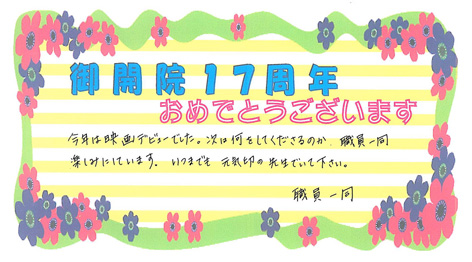 御開院17周年
おめでとうございます
今年は映画デビューでした。次は何をしてくださるのか 職員一同
楽しみにしています。いつまでも 元気印の先生でいて下さい。
職員一同